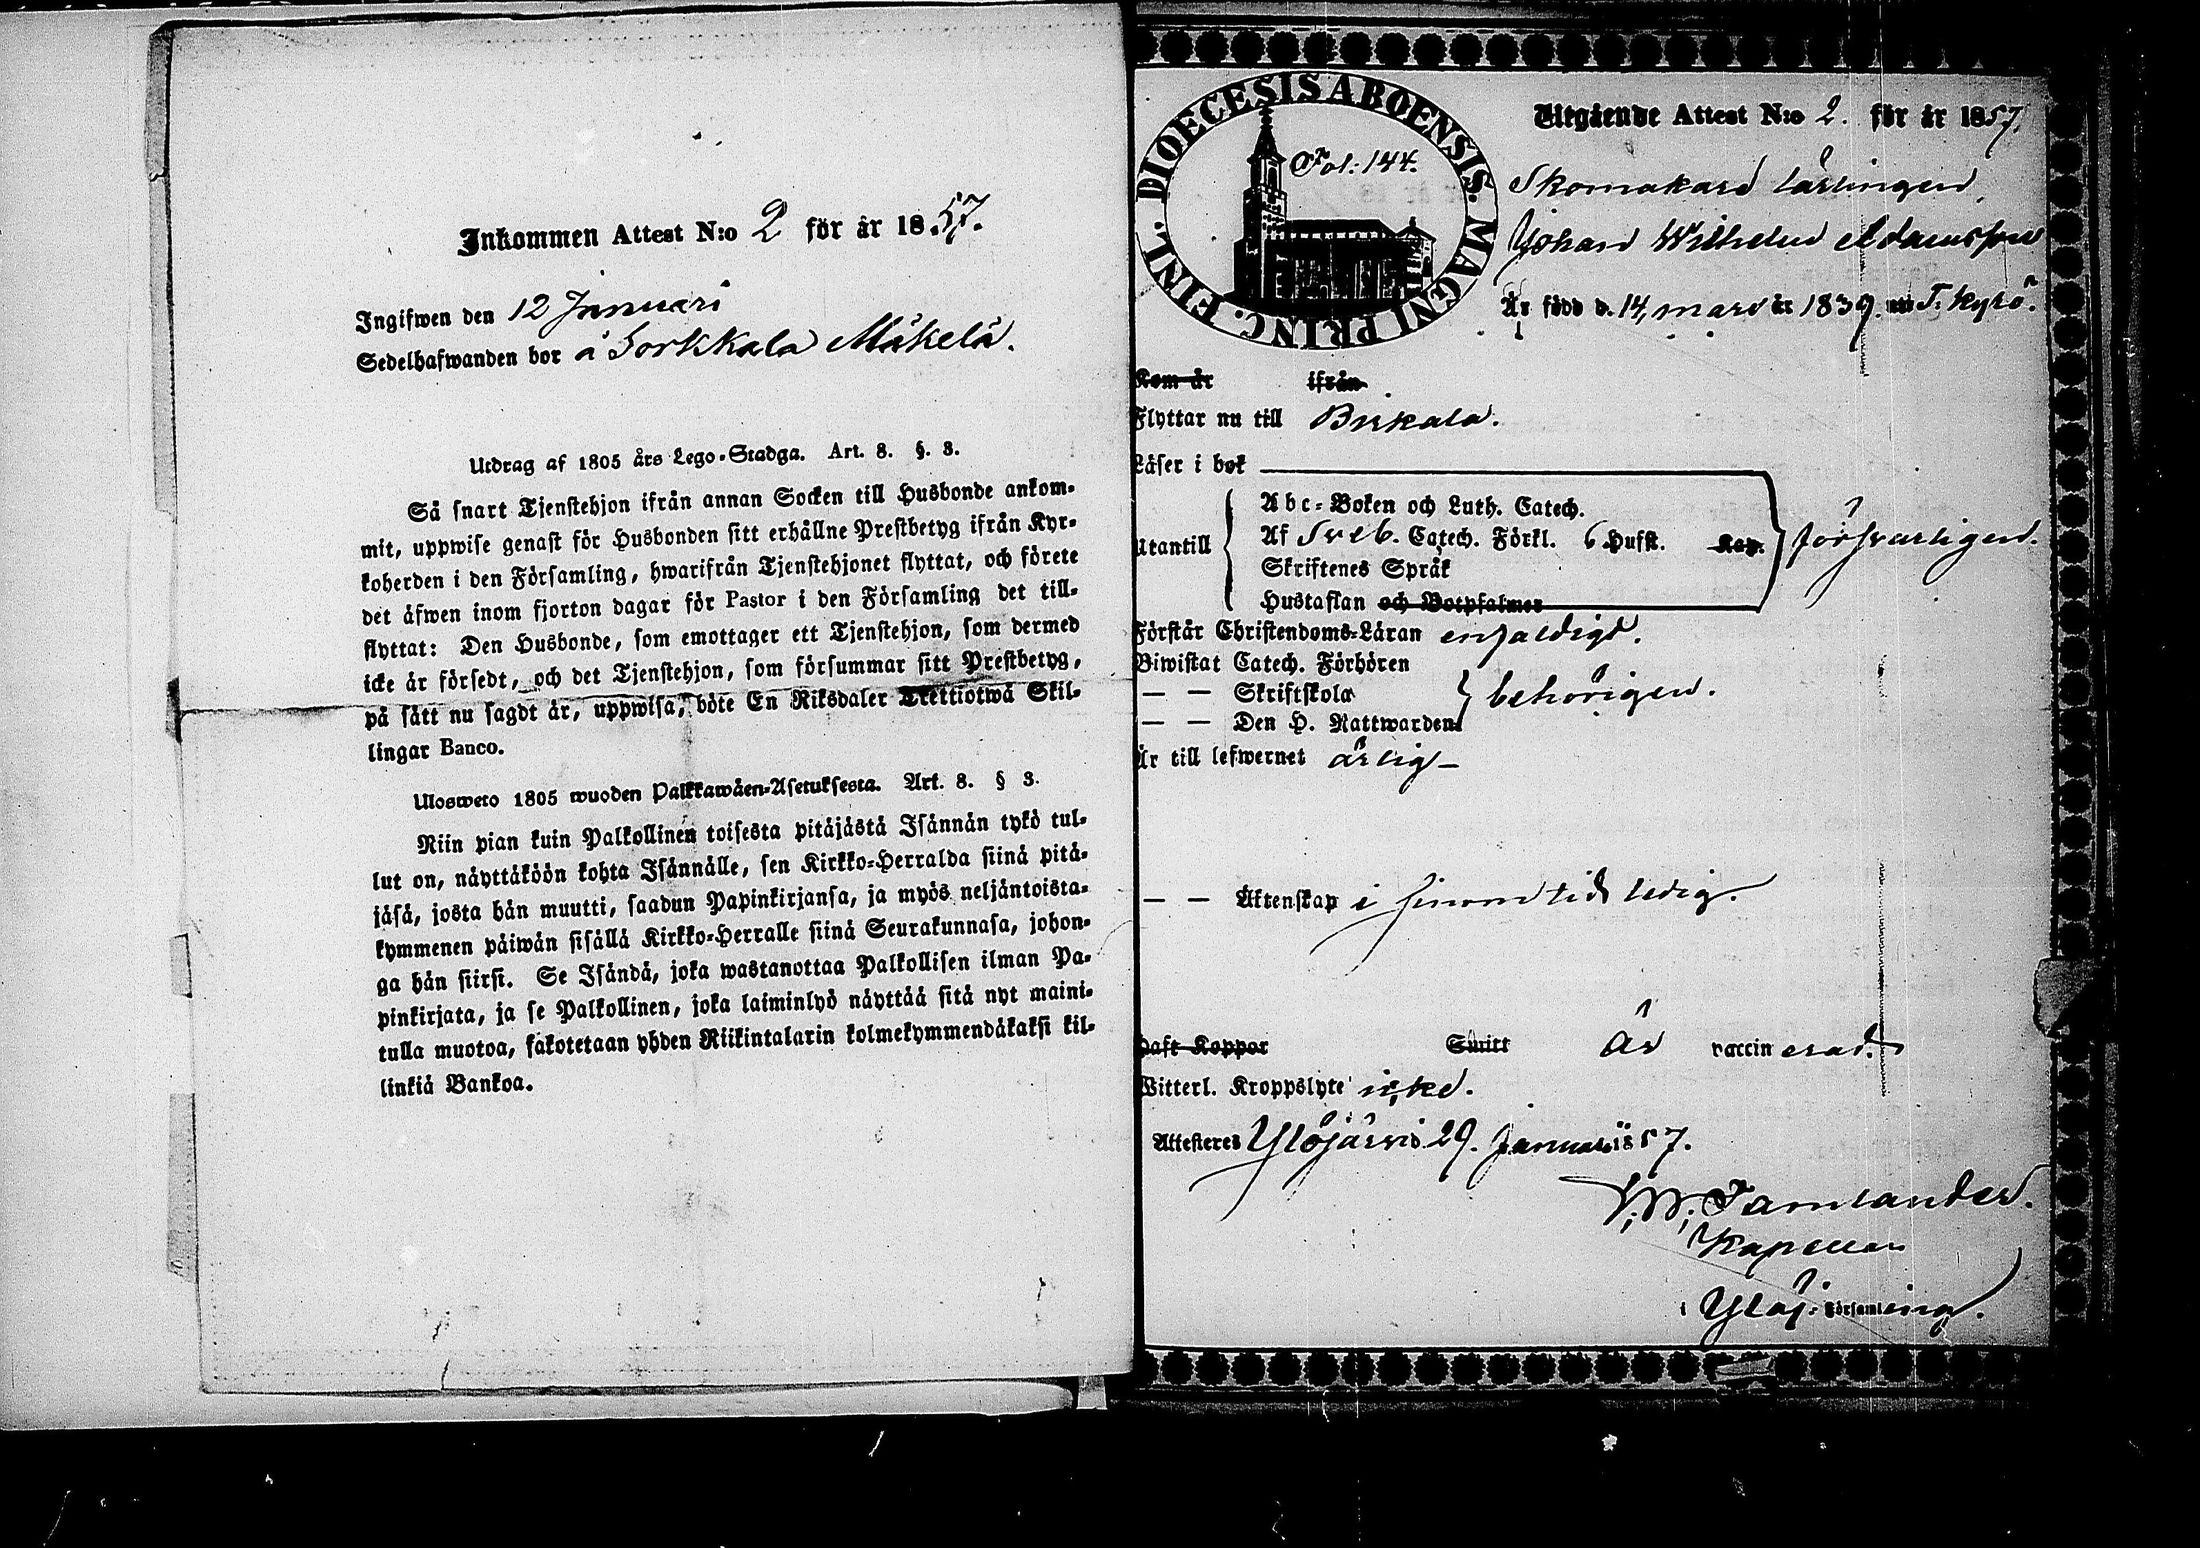 Inkommen Attest N:o 2 för år 1857.
Ingifwen den 12 Januari
Sedelhafwanden bor å Sorkkala Mäkelä.
Utdrag af 1805 års Lego-Stadga. Art. 8. §. 3.
Så snart Tjenstehjon ifrån annan Socken till Husbonde ankom-
mit, uppwise genast för Husbonden sitt erhållne Prestbetyg ifrån Kyr-
koherden i den Församling, hwarifrån Tjenstehjonet flyttat, och förete
det äfwen inom fjorton dagar för Pastor i den Församling det till-
flyttat: Den Husbonde, som emottager ett Tjenstehjon, som dermed
icke är försedt, och det Tjenstehjon, som försummar sitt Prestbetyg,
på sätt nu sagdt är, uppwisa, böte En Riksdaler Trettiotwå Skil-
lingar Banco.
Ulosweto 1805 wuoden Palkkawäen-Asetuksesta. Art. 8. § 3.
Niin pian kuin Palkollinen toisesta pitäjästä Isännän tykö tul-
lut on, näyttäköön kohta Isännälle, sen Kirkko-Herralda siinä pitä-
jäsä, josta hän muutti, saadun Papinkirjansa, ja myös neljäntoista-
kymmenen päiwän sisällä Kirkko-Herralle siinä Seurakunnasa, johon-
ga hän siirsi. Se Isändä, joka wastanottaa Palkollisen ilman Pa-
pinkirjata, ja se Palkollinen, joka laiminlyö näyttää sitä nyt maini-
tulla muotoa, sakotetaan yhden Riikintalarin kolmekymmendäkaksi kil-
linkiä Bankoa.
DIOECESIS ABOENSIS. MAGNI PRINC. FINL.
Fol: 144.
Utgående Attest N:o 2. för år 1857.
Skomakare lärlingen
Johan Wilhelm Adamsson
Är född d. 14 mars år 1839 uti T. Kyrö.
Kom år ifrån
Flyttar nu till Birkala.
Läser i bok
Utantill
Abc-Boken och Luth. Catech.
Af Sveb. Catech. Förkl. 6 Hufst. Kap.
Skriftenes Språk
Hustaflan och Botpsalmer
försvarligen.
Förstår Christendoms-Läran enfaldigt.
Biwistat Catech. Förhören
— — Skriftskola
— — Den H. Nattwarden
behörigen.
Är till lefwernet ärlig —
— — Äktenskap i sinom tid ledig.
Haft Koppor Smitt Är vaccinerad.
Witterl. Kroppslyte icke.
Attesteres Ylöjärvi 29. Januarii 57.
Tamlander.
Kapellan
i Ylöj: Församling.